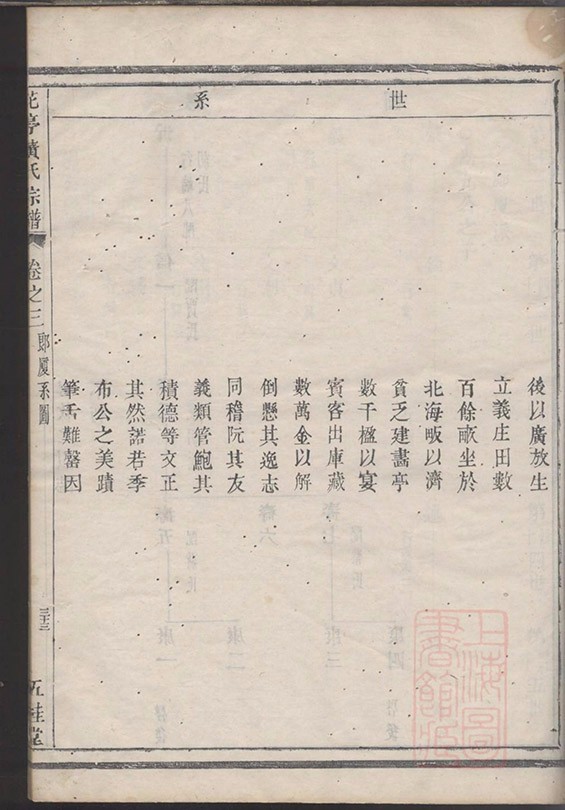 世系
後以廣放生
立義庄田數
百餘畝坐於
北海畈以濟
貧乏建畵亭
數千楹以宴
賓客出庫藏
數萬金以解
倒懸其逸志
同稽阮其友
義類管鮑其
積德等文正
其然諾若季
布公之美蹟
筆舌難罄因
花亭黄氏宗譜
卷之三
郎厦系圖
三十三
五桂堂
上海圖書館藏